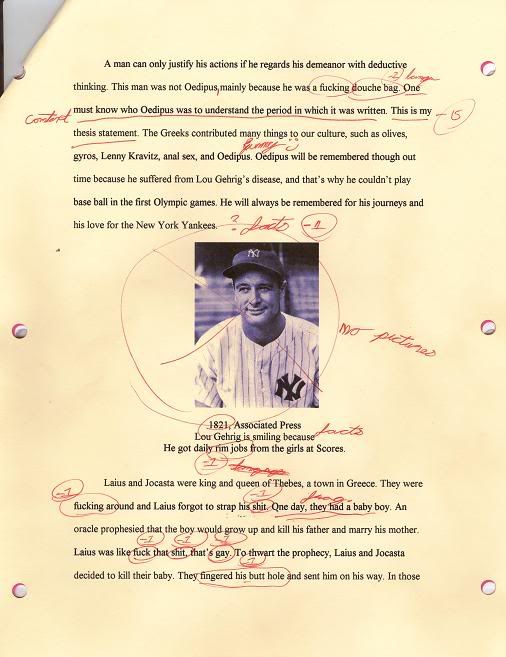 A man can only justify his actions if he regards his demeanor with deductive
-2 lang
thinking. This man was not Oedipus, mainly because he was a fucking douche bag. One
must know who Oedipus was to understand the period in which it was written. This is my
context
-15
thesis statement. The Greeks contributed many things to our culture, such as olives,
funny
gyros, Lenny Kravitz, anal sex, and Oedipus. Oedipus will be remembered though out
time because he suffered from Lou Gehrig's disease, and that's why he couldn't play
base ball in the first Olympic games. He will always be remembered for his journeys and
his love for the New York Yankees. ? facts -1
NY
NY
no pictures
1821, Associated Press
Lou Gehrig is smiling because facts
He got daily rim jobs from the girls at Scores.
-1 language
Laius and Jocasta were king and queen of Thebes, a town in Greece. They were
-1 -1 frag
fucking around and Laius forgot to strap his shit. One day, they had a baby boy. An
oracle prophesied that the boy would grow up and kill his father and marry his mother.
-1 -1
Laius was like fuck that shit, that's gay. To thwart the prophecy, Laius and Jocasta
-1
decided to kill their baby. They fingered his butt hole and sent him on his way. In those